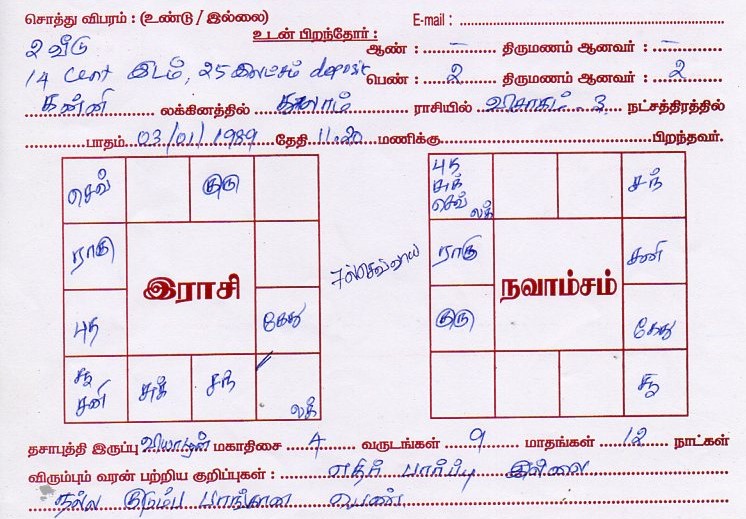 சொத்து விபரம் : (உண்டு / இல்லை) E-mail :
உடன் பிறந்தோர் :
2 வீடு ஆண் : – திருமணம் ஆனவர் : –
14 cent இடம், 25 இலட்சம் deposit பெண் : 2 திருமணம் ஆனவர் : 2
கன்னி லக்கினத்தில் துலாம் ராசியில் விசாகம் - 3 நட்சத்திரத்தில்
பாதம் 03/01/1989 தேதி 11.20 மணிக்கு பிறந்தவர்.
செவ் குரு
ராகு
இராசி
புத கேது
சூ சனி சுக் சந் லக்
7ல் செவ்வாய்
புத சுக் செவ் லக் சந்
ராகு சனி
நவாம்சம்
குரு கேது
சூ
தசாபுத்தி இருப்பு வியாழன் மகாதிசை 4 வருடங்கள் 9 மாதங்கள் 12 நாட்கள்
விரும்பும் வரன் பற்றிய குறிப்புகள் : எதிர் பார்ப்பு இல்லை
நல்ல குடும்ப பாங்கான பெண்